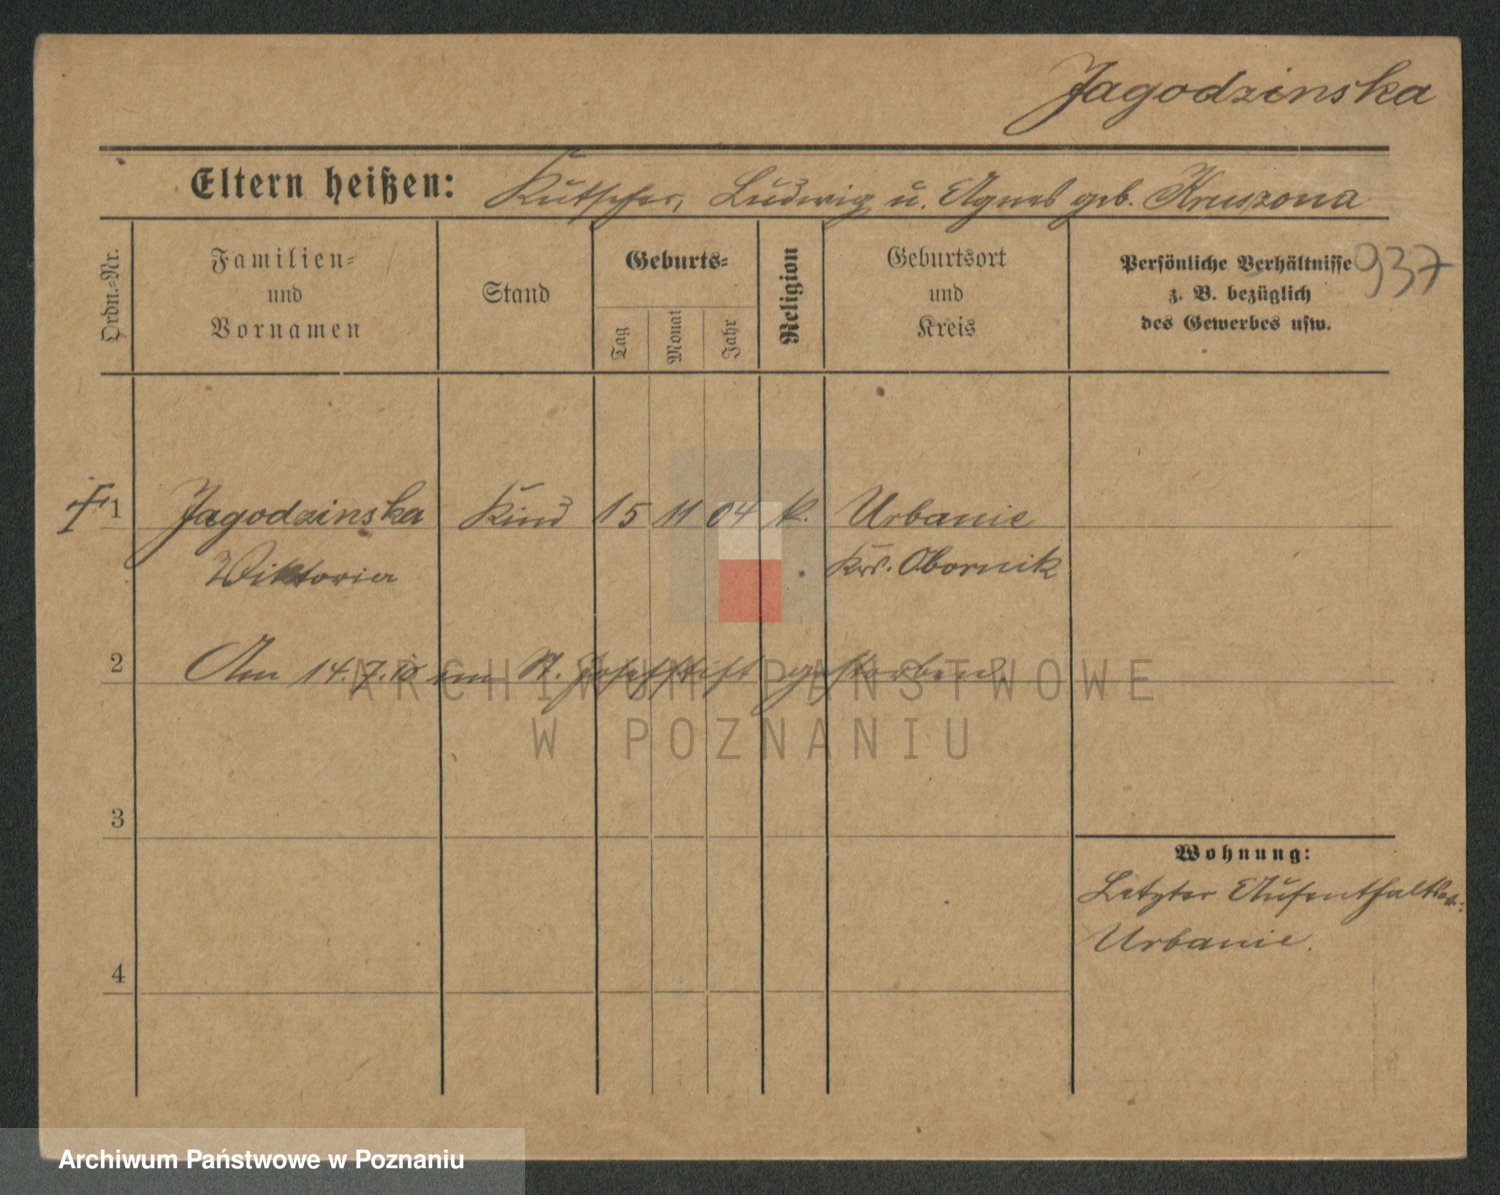 Jagodzinska
Eltern heißen: Kutscher, Ludwig u. Agnes geb. Kruszona
Ordn.-Nr.
Familien-
und
Vornamen
Stand
Geburts-
Tag
Monat
Jahr
Religion
Geburtsort
und
Kreis
Persönliche Verhältnisse
z. B. bezüglich
des Gewerbes usw.
937
1 Jagodzinska Kind 15 11 04 k. Urbanie
Wiktoria Krs. Obornik
2 Am 14.7. im St. Josefstift gestorben.
ARCHIWUM PAŃSTWOWE
W POZNANIU
3
Wohnung:
Letzter Aufenthaltsort:
Urbanie.
4
Archiwum Państwowe w Poznaniu